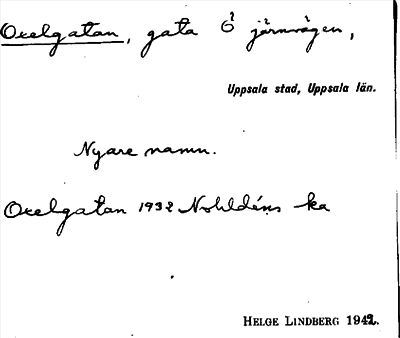 Oxelgatan, gata Ö järnvägen,
Uppsala stad, Uppsala län.
Nyare namn.
Oxelgatan 1932 Nohldéns ka
HELGE LINDBERG 1942.